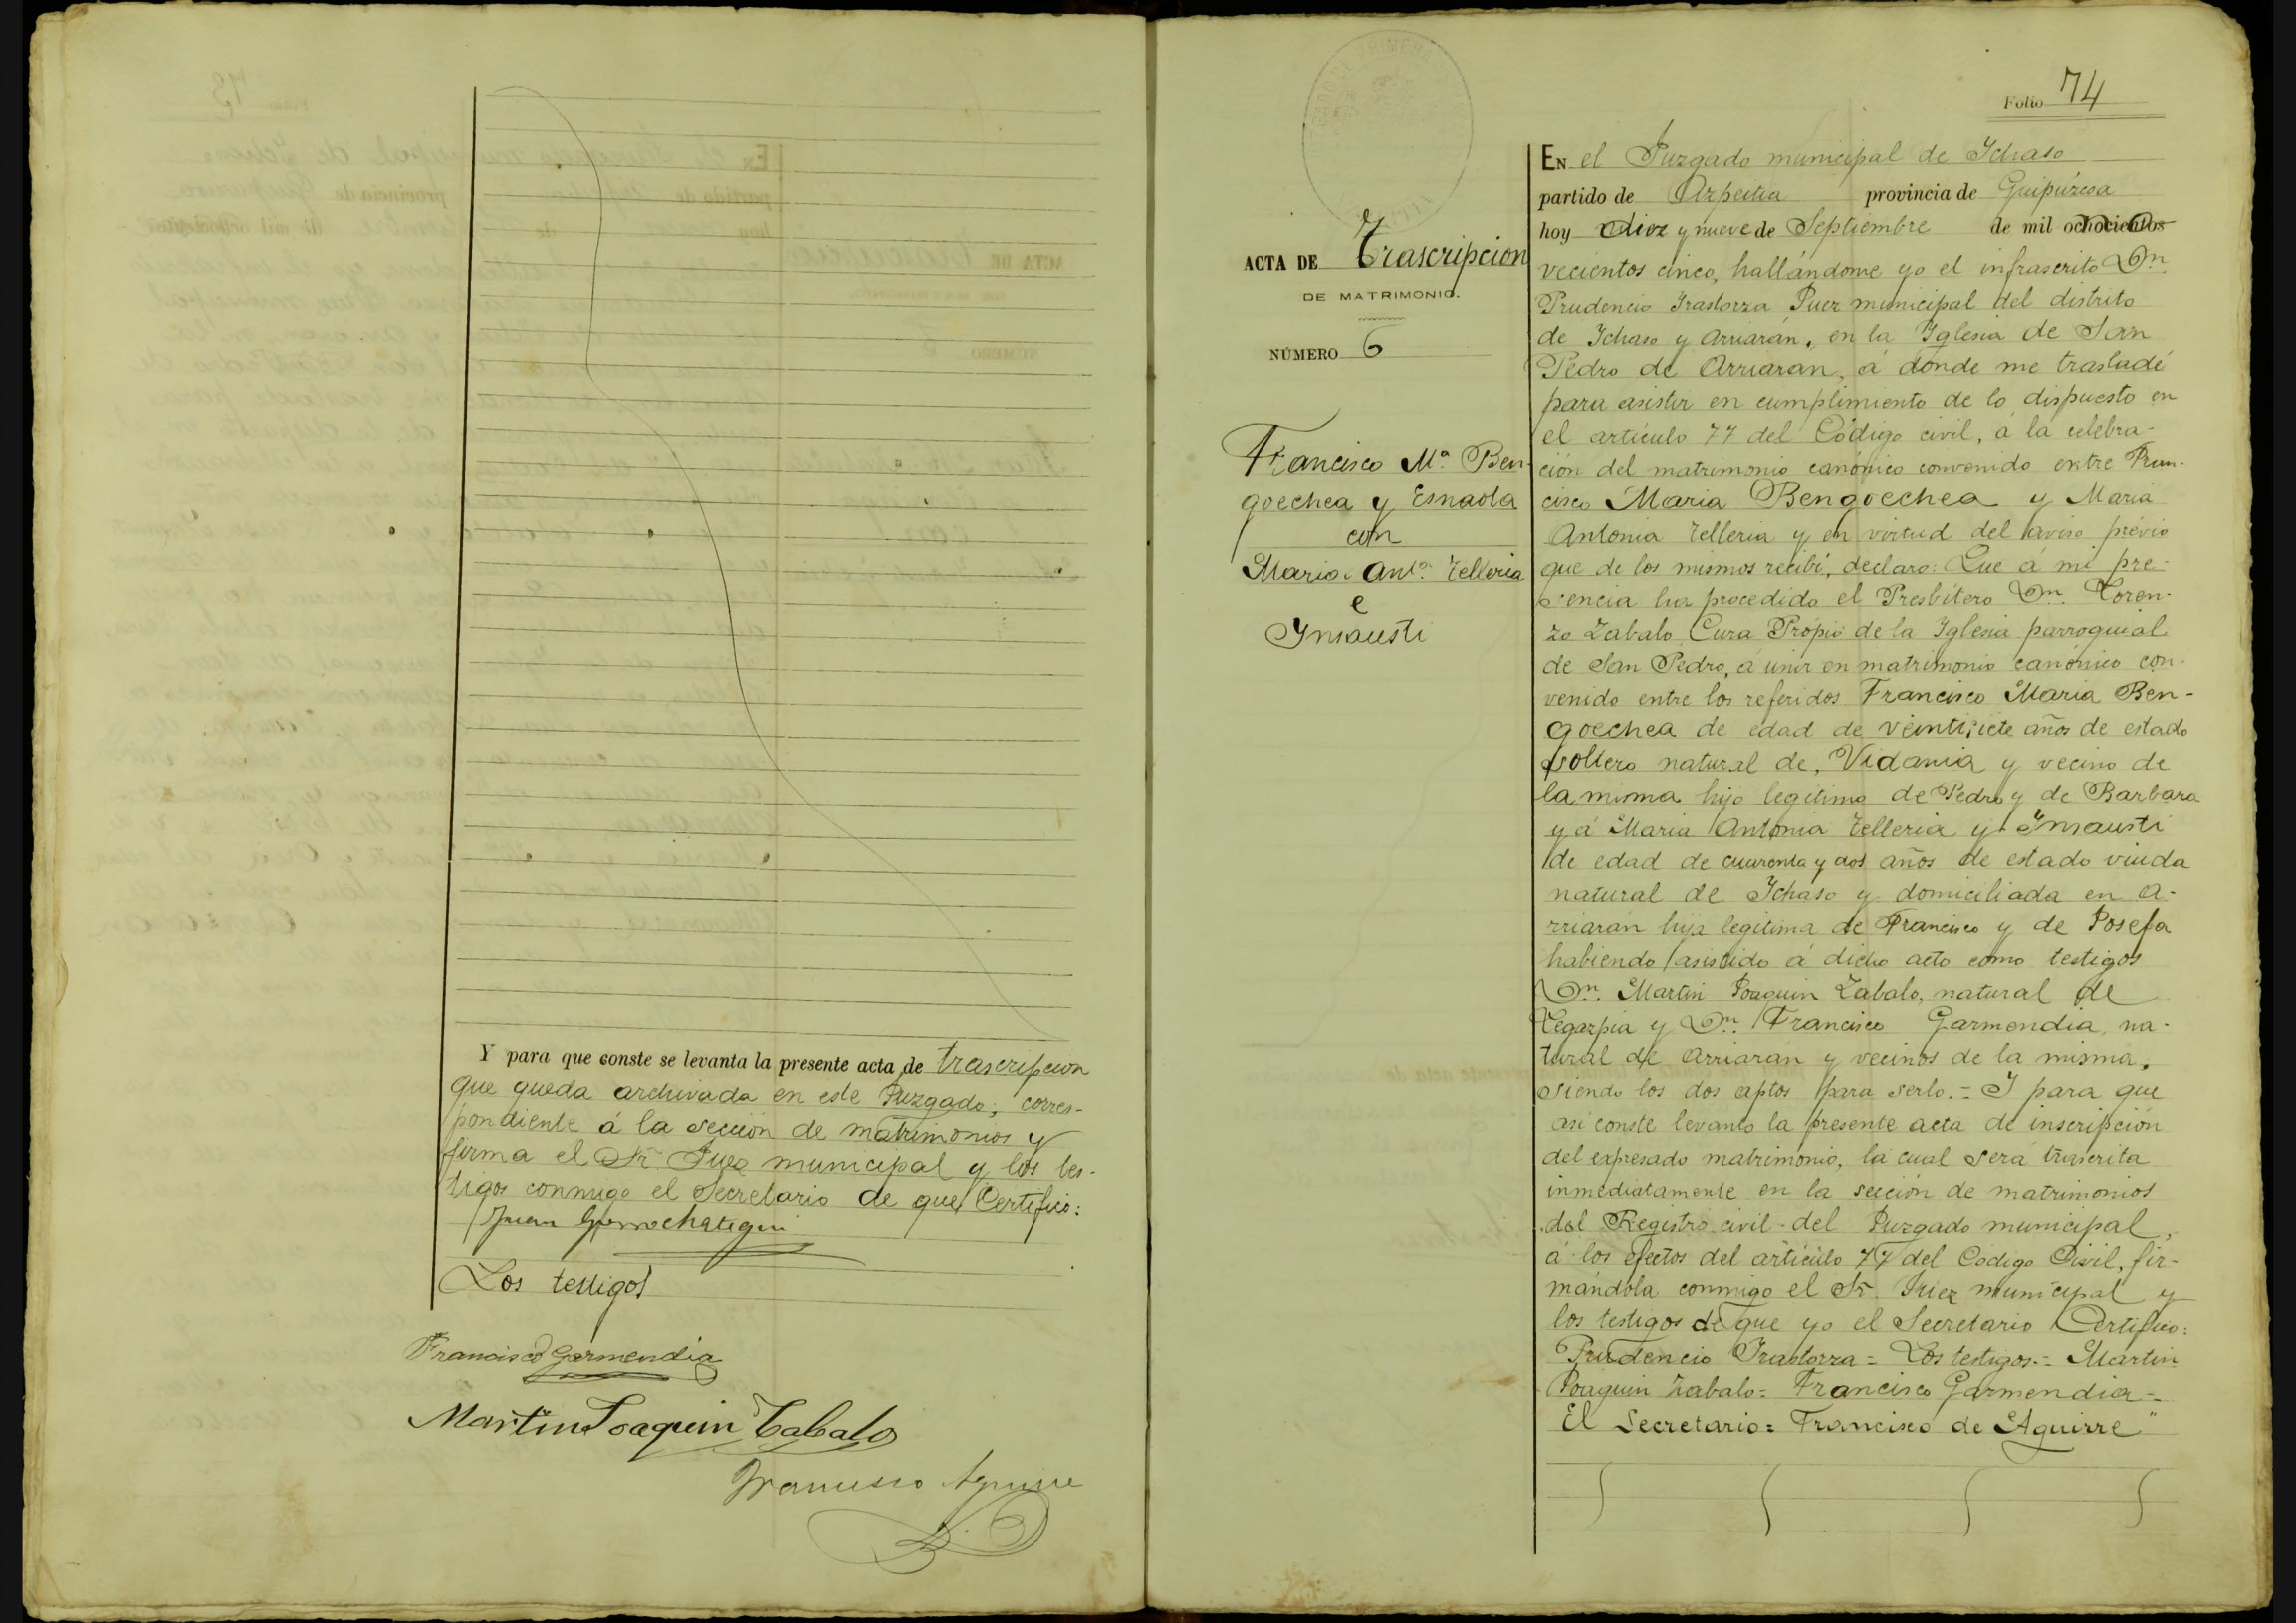 Y para que conste se levanta la presente acta de trascripcion
que queda archivada en este Juzgado; corres-
pondiente á la sección de matrimonios y
firma el Sr. Juez municipal y los tes-
tigos conmigo el Secretario de que Certifico:
Juan
Los testigos
Francisco Garmendia
Martin Joaquin Zabalo
Francisco Aguirre
Folio 74
ACTA DE Trascripcion
DE MATRIMONIO.
NÚMERO 6
Francisco Mª. Ben-
goechea y Esnaola
con
Maria Antª. Telleria
e
Insausti
EN el Juzgado municipal de Ichaso
partido de Azpeitia provincia de Guipúzcoa
hoy diez y nueve de Septiembre de mil ochocientos
vecientos cinco, hallándome yo el infrascrito Dn.
Prudencio Irastorza Juez municipal del distrito
de Ichaso y Arriarán, en la Iglesia de San
Pedro de Arriaran, á donde me trasladé
para asistir en cumplimiento de lo dispuesto en
el artículo 77 del Código civil, á la celebra-
ción del matrimonio canónico convenido entre Fran-
cisco Maria Bengoechea y Maria
Antonia Telleria y en virtud del aviso prévio
que de los mismos recibí, declaro: Que á mi pre-
sencia ha procedido el Presbítero Dn. Loren-
zo Zabalo Cura Própio de la Iglesia parroquial
de San Pedro, á unir en matrimonio canónico con-
venido entre los referidos Francisco Maria Ben-
goechea de edad de veintisiete años de estado
soltero natural de, Vidania y vecino de
la misma hijo legítimo de Pedro y de Barbara
y á Maria Antonia Telleria y Insausti
de edad de cuarenta y dos años de estado viuda
natural de Ichaso y domiciliada en A-
rriarán hija legítima de Francisco y de Josefa
habiendo asistido á dicho acto como testigos
Dn. Martin Joaquin Zabalo, natural de
Legazpia y Dn. Francisco Garmendia, na-
tural de Arriarán y vecinos de la misma,
siendo los dos aptos para serlo.= Y para que
asi conste levanto la presente acta de inscripción
del expresado matrimonio, la cual será trascrita
inmediatamente en la sección de matrimonios
del Registro civil del Juzgado municipal,
á los efectos del artículo 77 del Código Civil, fir-
mándola conmigo el Sr. Juez municipal y
los testigos de que yo el Secretario Certifico:
Prudencio Irastorza = Los testigos.= Martin
Joaquin Zabalo = Francisco Garmendia =
El Secretario = Francisco de Aguirre"